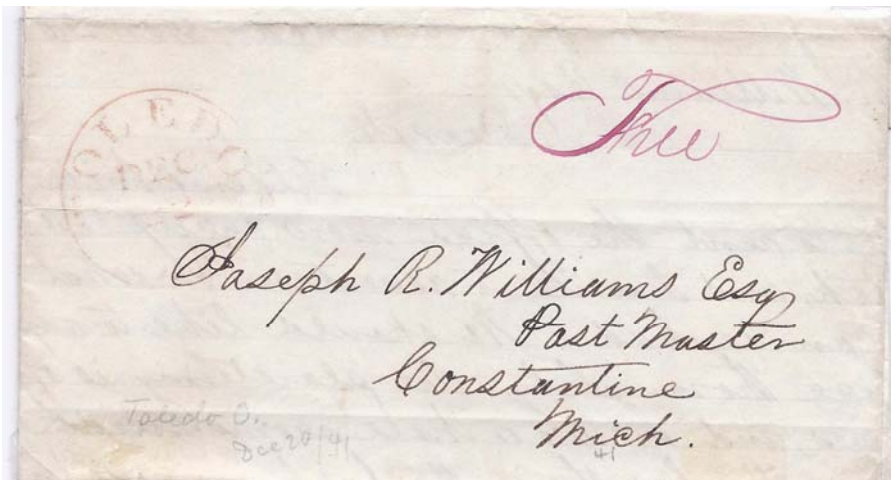 TOLEDO
DEC
Free
Joseph R. Williams Esq
Post Master
Constantine
Mich.
Toledo O.
Dec 20/41
41